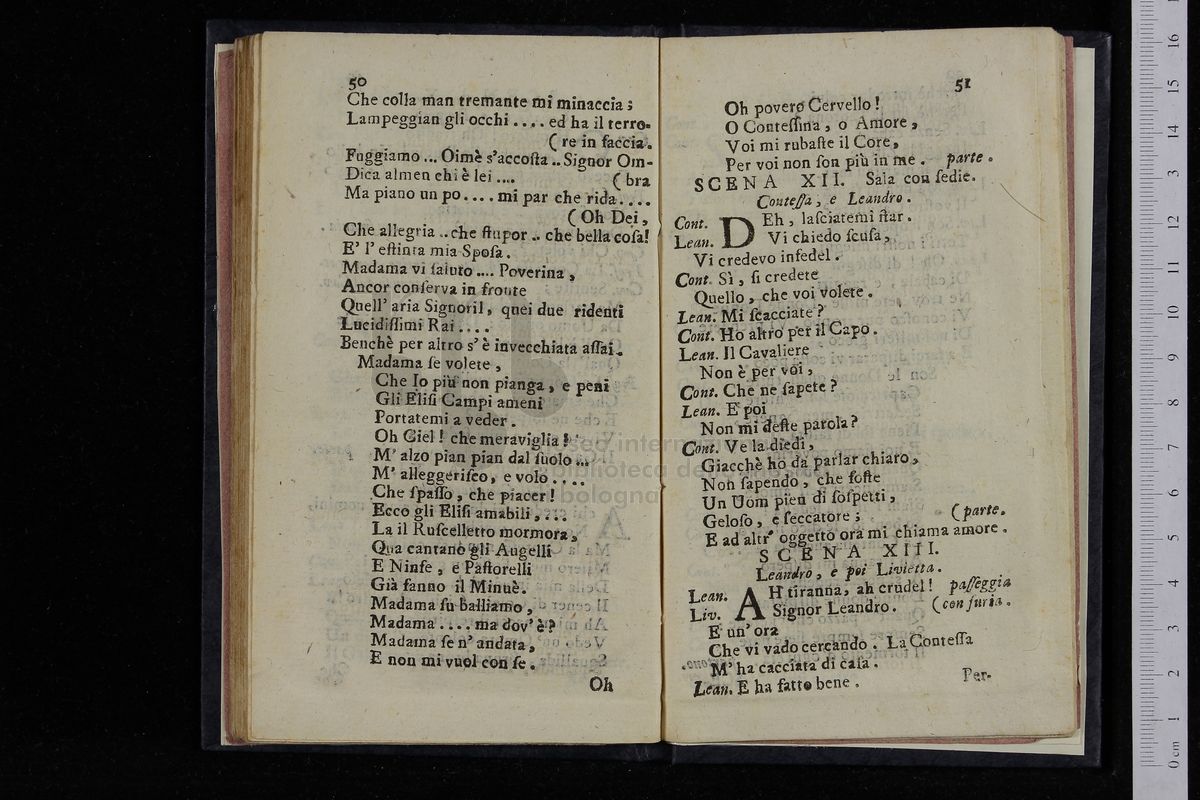 50
Che colla man tremante mi minaccia;
Lampeggian gli occhi .... ed ha il terro-
(re in faccia.
Fuggiamo ... Oimè s'accoſta .. Signor Om-
Dica almen chi è lei .... (bra
Ma piano un po .... mi par che rida ....
(Oh Dei,
Che allegria .. che ſtupor .. che bella coſa!
E' l' eſtinta mia Spoſa.
Madama vi ſaluto .... Poverina,
Ancor conſerva in fronte
Quell' aria Signoril, quei due ridenti
Lucidiſſimi Rai ....
Benchè per altro s'è invecchiata aſſai.
Madama ſe volete,
Che Io più non pianga, e peni
Gli Eliſi Campi ameni
Portatemi a veder.
Oh Ciel! che meraviglia!
M' alzo pian pian dal ſuolo ...
M' alleggeriſco, e volo ....
Che ſpaſſo, che piacer!
Ecco gli Eliſi amabili, ...
La il Ruſcelletto mormora,
Qua cantano gli Augelli
E Ninfe, e Paſtorelli
Già fanno il Minuè.
Madama ſu balliamo,
Madama .... ma dov'è?
Madama ſe n' andata,
E non mi vuol con ſe.
Oh
51
Oh povero Cervello!
O Conteſſina, o Amore,
Voi mi rubaſte il Core,
Per voi non ſon più in me. parte.
SCENA XII. Sala con ſedie.
Conteſſa, e Leandro.
Cont. DEh, laſciatemi ſtar.
Lean. Vi chiedo ſcuſa,
Vi credevo infedel.
Cont. Sì, ſi credete
Quello, che voi volete.
Lean. Mi ſcacciate?
Cont. Ho altro per il Capo.
Lean. Il Cavaliere
Non è per voi,
Cont. Che ne ſapete?
Lean. E poi
Non mi deſte parola?
Cont. Ve la diedi,
Giacchè ho da parlar chiaro,
Non ſapendo, che foſte
Un Uom pien di ſoſpetti,
Geloſo, e ſeccatore; (parte.
E ad altr' oggetto ora mi chiama amore.
SCENA XIII.
Leandro, e poi Livietta.
Lean. AH tiranna, ah crudel! paſſeggia
Liv. Signor Leandro. (con furia.
E' un' ora
Che vi vado cercando. La Conteſſa
M' ha cacciata di caſa.
Lean. E ha fatto bene.
Per-